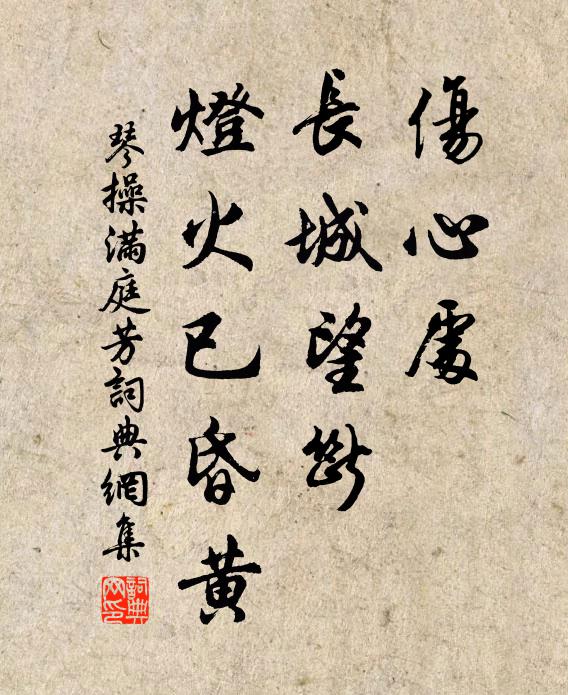 傷心處
長城望斷
燈火已昏黃
琴操滿庭芳詞典網集
詞典網印